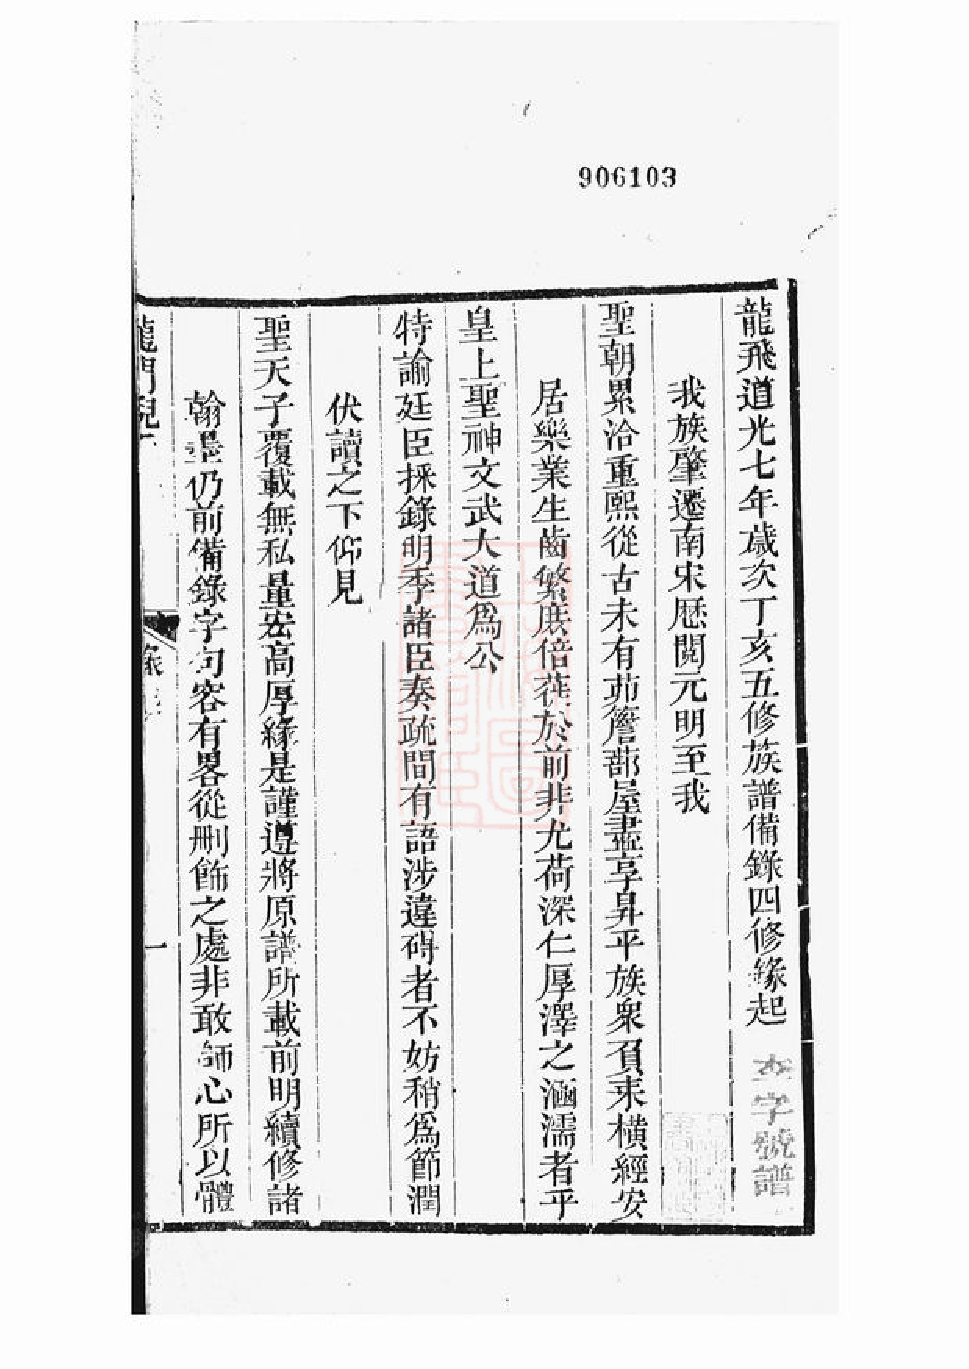 906103
龍飛道光七年歲次丁亥五修族譜備錄四修緣起
字號譜
我族肇遷南宋歷閱元明至我
聖朝累洽重熙從古未有茆簷蔀屋盡享昇平族衆負耒橫經安
居樂業生齒繁庶倍蓰於前非尤荷深仁厚澤之涵濡者乎
皇上聖神文武大道爲公
特諭廷臣採錄明季諸臣奏疏間有語涉違碍者不妨稍爲節潤
伏讀之下仰見
聖天子覆載無私量宏高厚緣是謹遵將原譜所載前明續修諸
翰墨仍前備錄字句容有畧從刪飾之處非敢師心所以體
龍門
緣
一